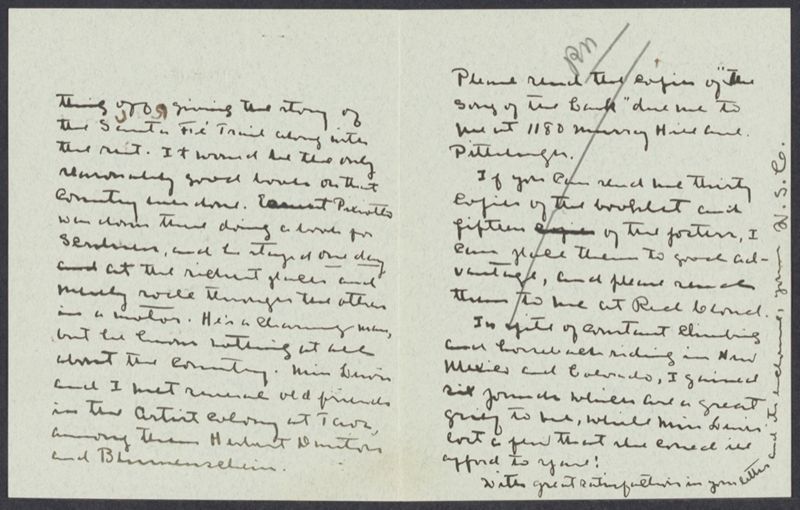 thing off giving the story of
the Santa Fé Trail along with
the rest. It would be the only
reasonably good book on that
Country ever done. Ernest Peixotto
was down there doing a book for
Scribners, and he stayed one day
and at the richest places and
merely rode through the others
in a motor. He is a charming man,
but he knows nothing at all
about the country. Miss Lewis
and I met several old friends
in the Artist Colony at Taos,
among them Herbert Dunton
and Blumenschein.
Please send the copies of "the
Song of the Lark" due me to
me at 1180 Murray Hill ave.
Pittsburgh.
If you can send me thirty
copies of the booklet and
fifteen of the posters, I
can place them to good ad-
vantage, and please send
them to me at Red Cloud.
In spite of constant climbing
and horseback riding in New
Mexico and Colorado, I gained
six pounds which are a great
grief to me, while Miss Lewis
lost a few that she could ill
afford to spare!
With great satisfaction in your letter
and the  yours W. S. C.